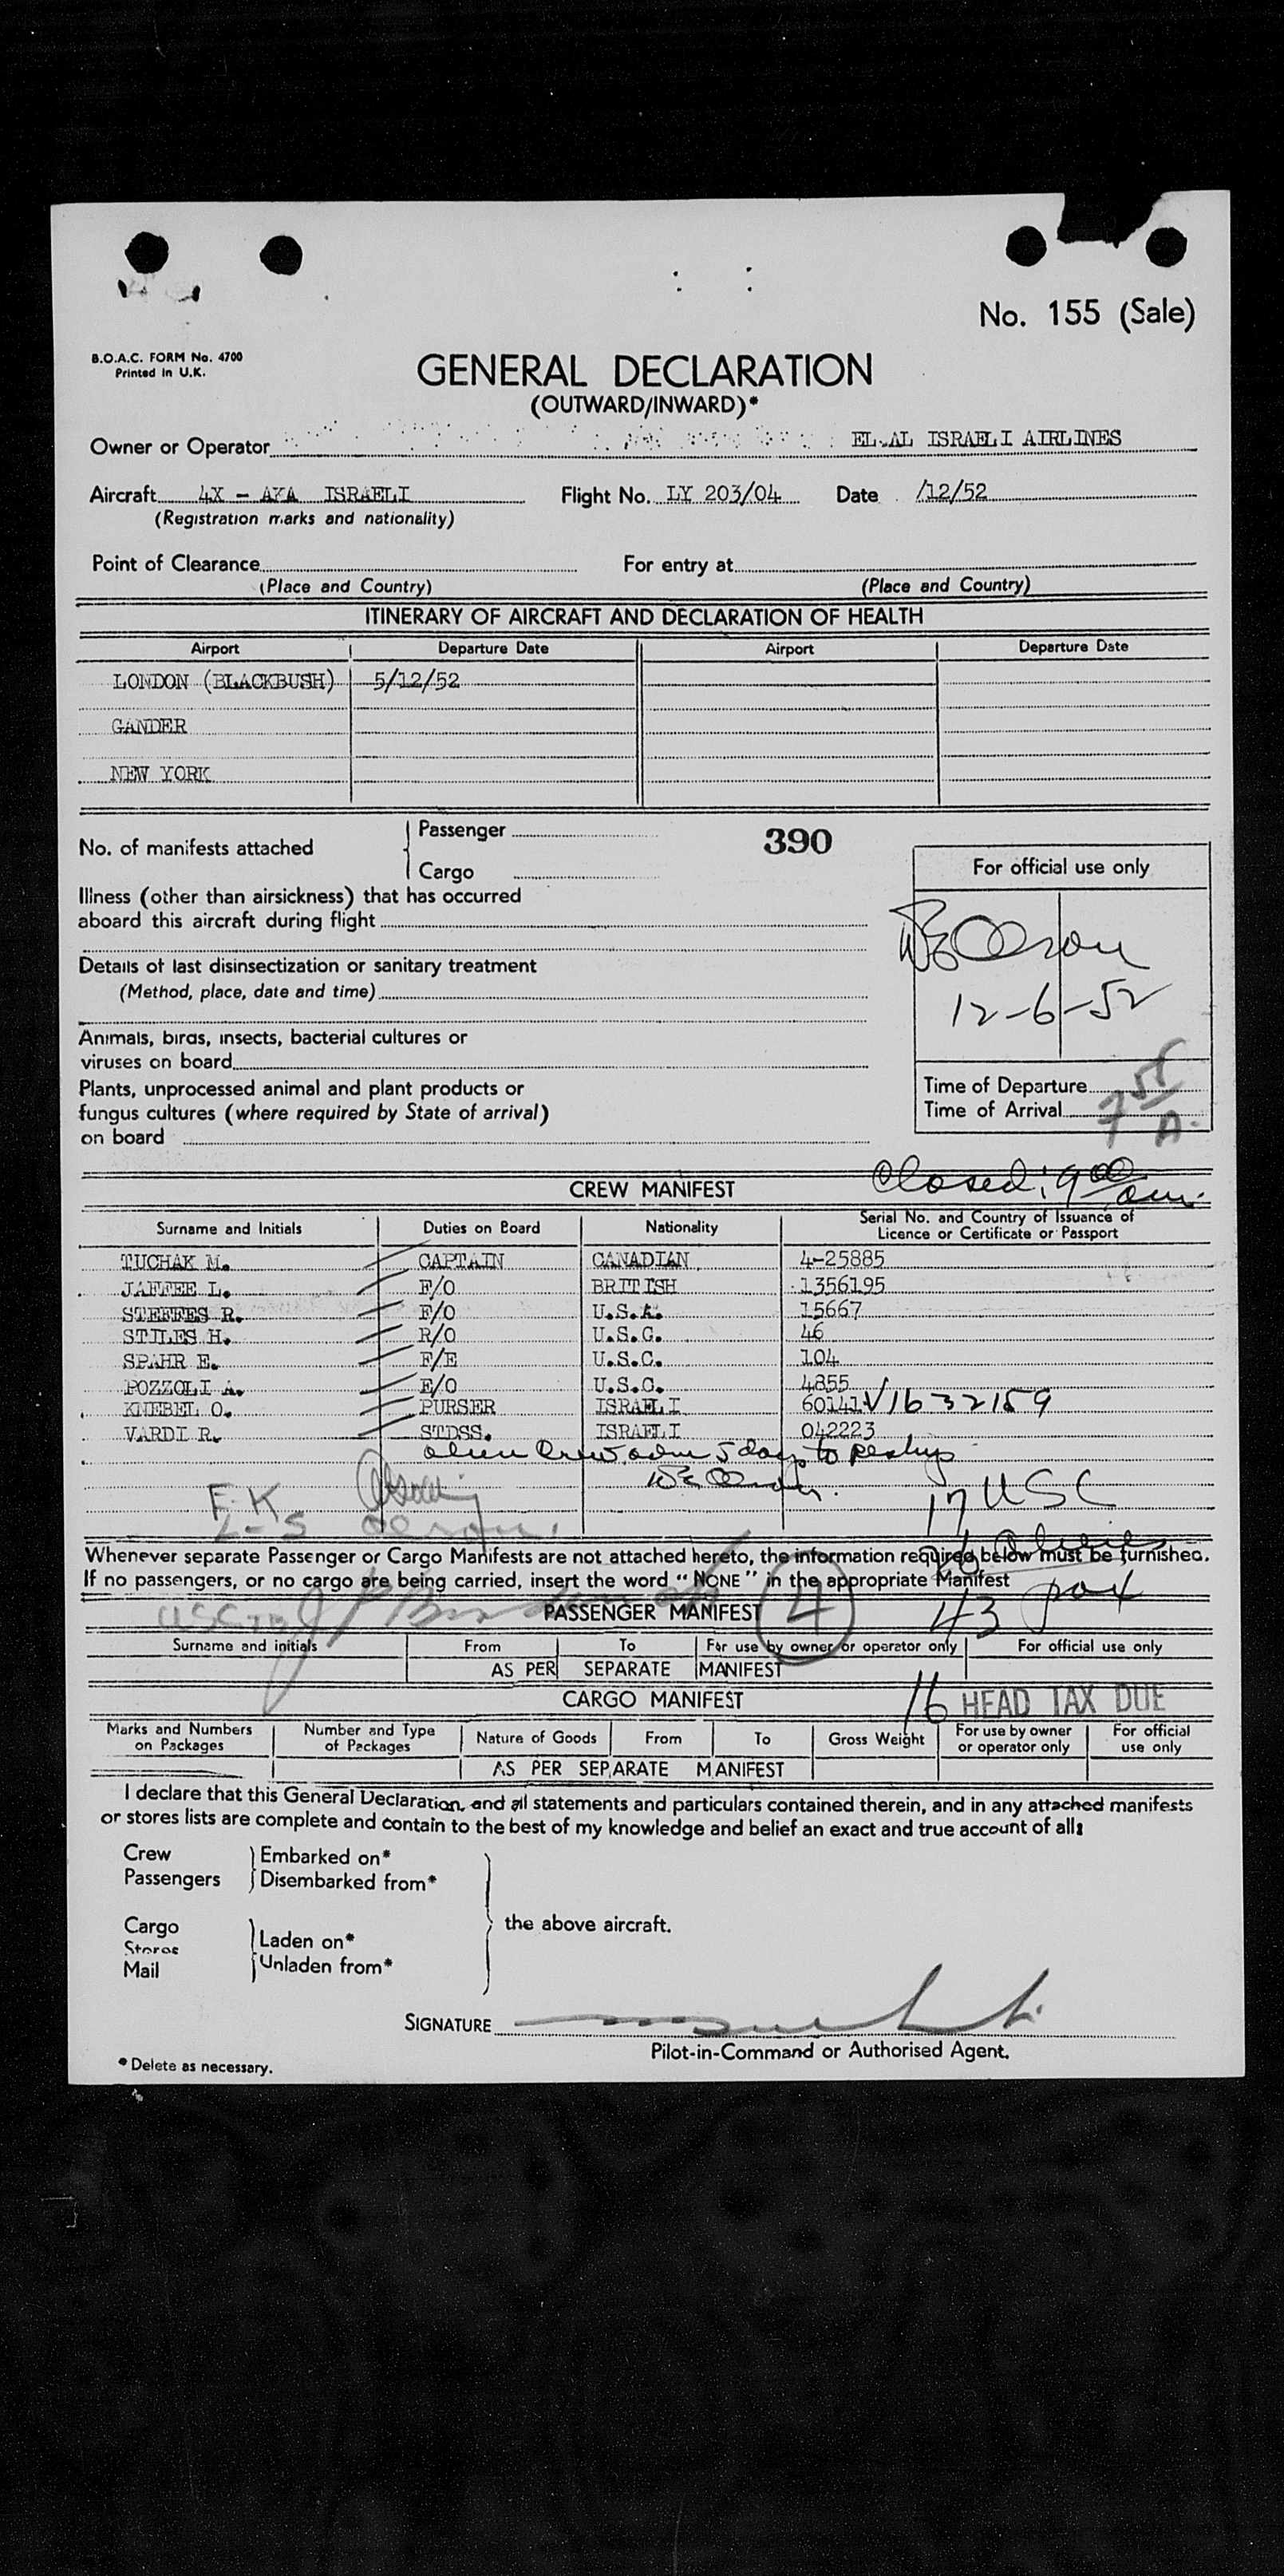 No. 155 (Sale)
B.O.A.C. FORM No. 4700
Printed in U.K.
GENERAL DECLARATION
(OUTWARD/INWARD)*
Owner or Operator EL-AL ISRAELI AIRLINES
Aircraft 4X - AKA ISRAELI Flight No. LY 203/04 Date /12/52
(Registration marks and nationality)
Point of Clearance For entry at
(Place and Country) (Place and Country)
ITINERARY OF AIRCRAFT AND DECLARATION OF HEALTH
Airport Departure Date Airport Departure Date
LONDON (BLACKBUSH) 5/12/52
GANDER
NEW YORK
No. of manifests attached Passenger
Cargo
390
For official use only
Illness (other than airsickness) that has occurred
aboard this aircraft during flight
Details of last disinsectization or sanitary treatment
(Method, place, date and time)
12-6-52
Animals, birds, insects, bacterial cultures or
viruses on board
Plants, unprocessed animal and plant products or
fungus cultures (where required by State of arrival)
on board
Time of Departure
Time of Arrival 7 55 A.
Closed: 9 00 am.
CREW MANIFEST
Surname and Initials Duties on Board Nationality Serial No. and Country of Issuance of
Licence or Certificate or Passport
TUCHAK M. CAPTAIN CANADIAN 4-25885
JAFFEE L. F/O BRITISH 1356195
STEFFES R. F/O U.S.A. 15667
STILES H. R/O U.S.C. 46
SPAHR E. F/E U.S.C. 104
POZZOLI A. E/O U.S.C. 4855
KNEBEL O. PURSER ISRAELI 60141 V1632159
VARDI R. STDSS. ISRAELI 042223
alien crew adm 5 days to
F.K
L-S
17 USC
26 Aliens
Whenever separate Passenger or Cargo Manifests are not attached hereto, the information required below must be furnished.
If no passengers, or no cargo are being carried, insert the word "NONE" in the appropriate Manifest
43 pax
PASSENGER MANIFEST 4
Surname and initials From To For use by owner or operator only For official use only
AS PER SEPARATE MANIFEST
CARGO MANIFEST
16 HEAD TAX DUE
Marks and Numbers on Packages Number and Type of Packages Nature of Goods From To Gross Weight For use by owner or operator only For official use only
AS PER SEPARATE MANIFEST
I declare that this General Declaration, and all statements and particulars contained therein, and in any attached manifests
or stores lists are complete and contain to the best of my knowledge and belief an exact and true account of all:
Crew Embarked on*
Passengers Disembarked from*
the above aircraft.
Cargo
Stores Laden on*
Mail Unladen from*
SIGNATURE
Pilot-in-Command or Authorised Agent.
* Delete as necessary.